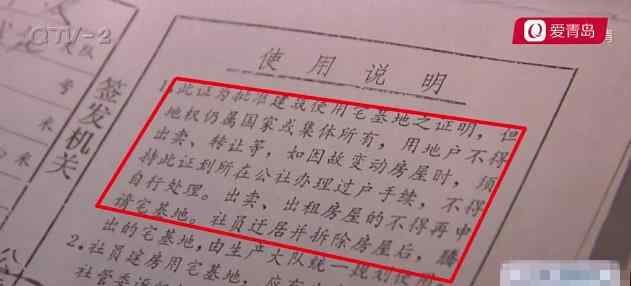 QTV-2
爱青岛
签发机关
使用说明
1.此证为批准建或使用宅基地之证明，但
地权仍属国家或集体所有，用地户不得
出卖、转让等，如因故变动房屋时，须
持此证到所在公社办理过户手续，不得
自行处理。出卖、出租房屋的不得再申
请宅基地。社员迁居并拆除房屋后，腾
出的宅基地，由生产大队统一规划使用
2.社员建房用宅基地，应在
社管委
大队
号
米
米